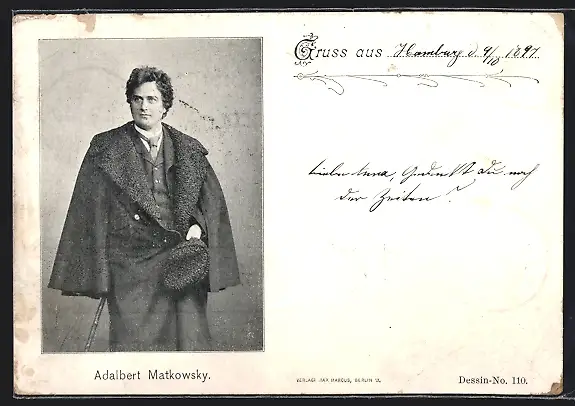 Gruss aus Hamburg d. 9/10 1897
Liebe Anna, Gedenkst Du noch
der Zeiten?
Adalbert Matkowsky.
VERLAG MAX MARCUS, BERLIN W.
Dessin-No. 110.